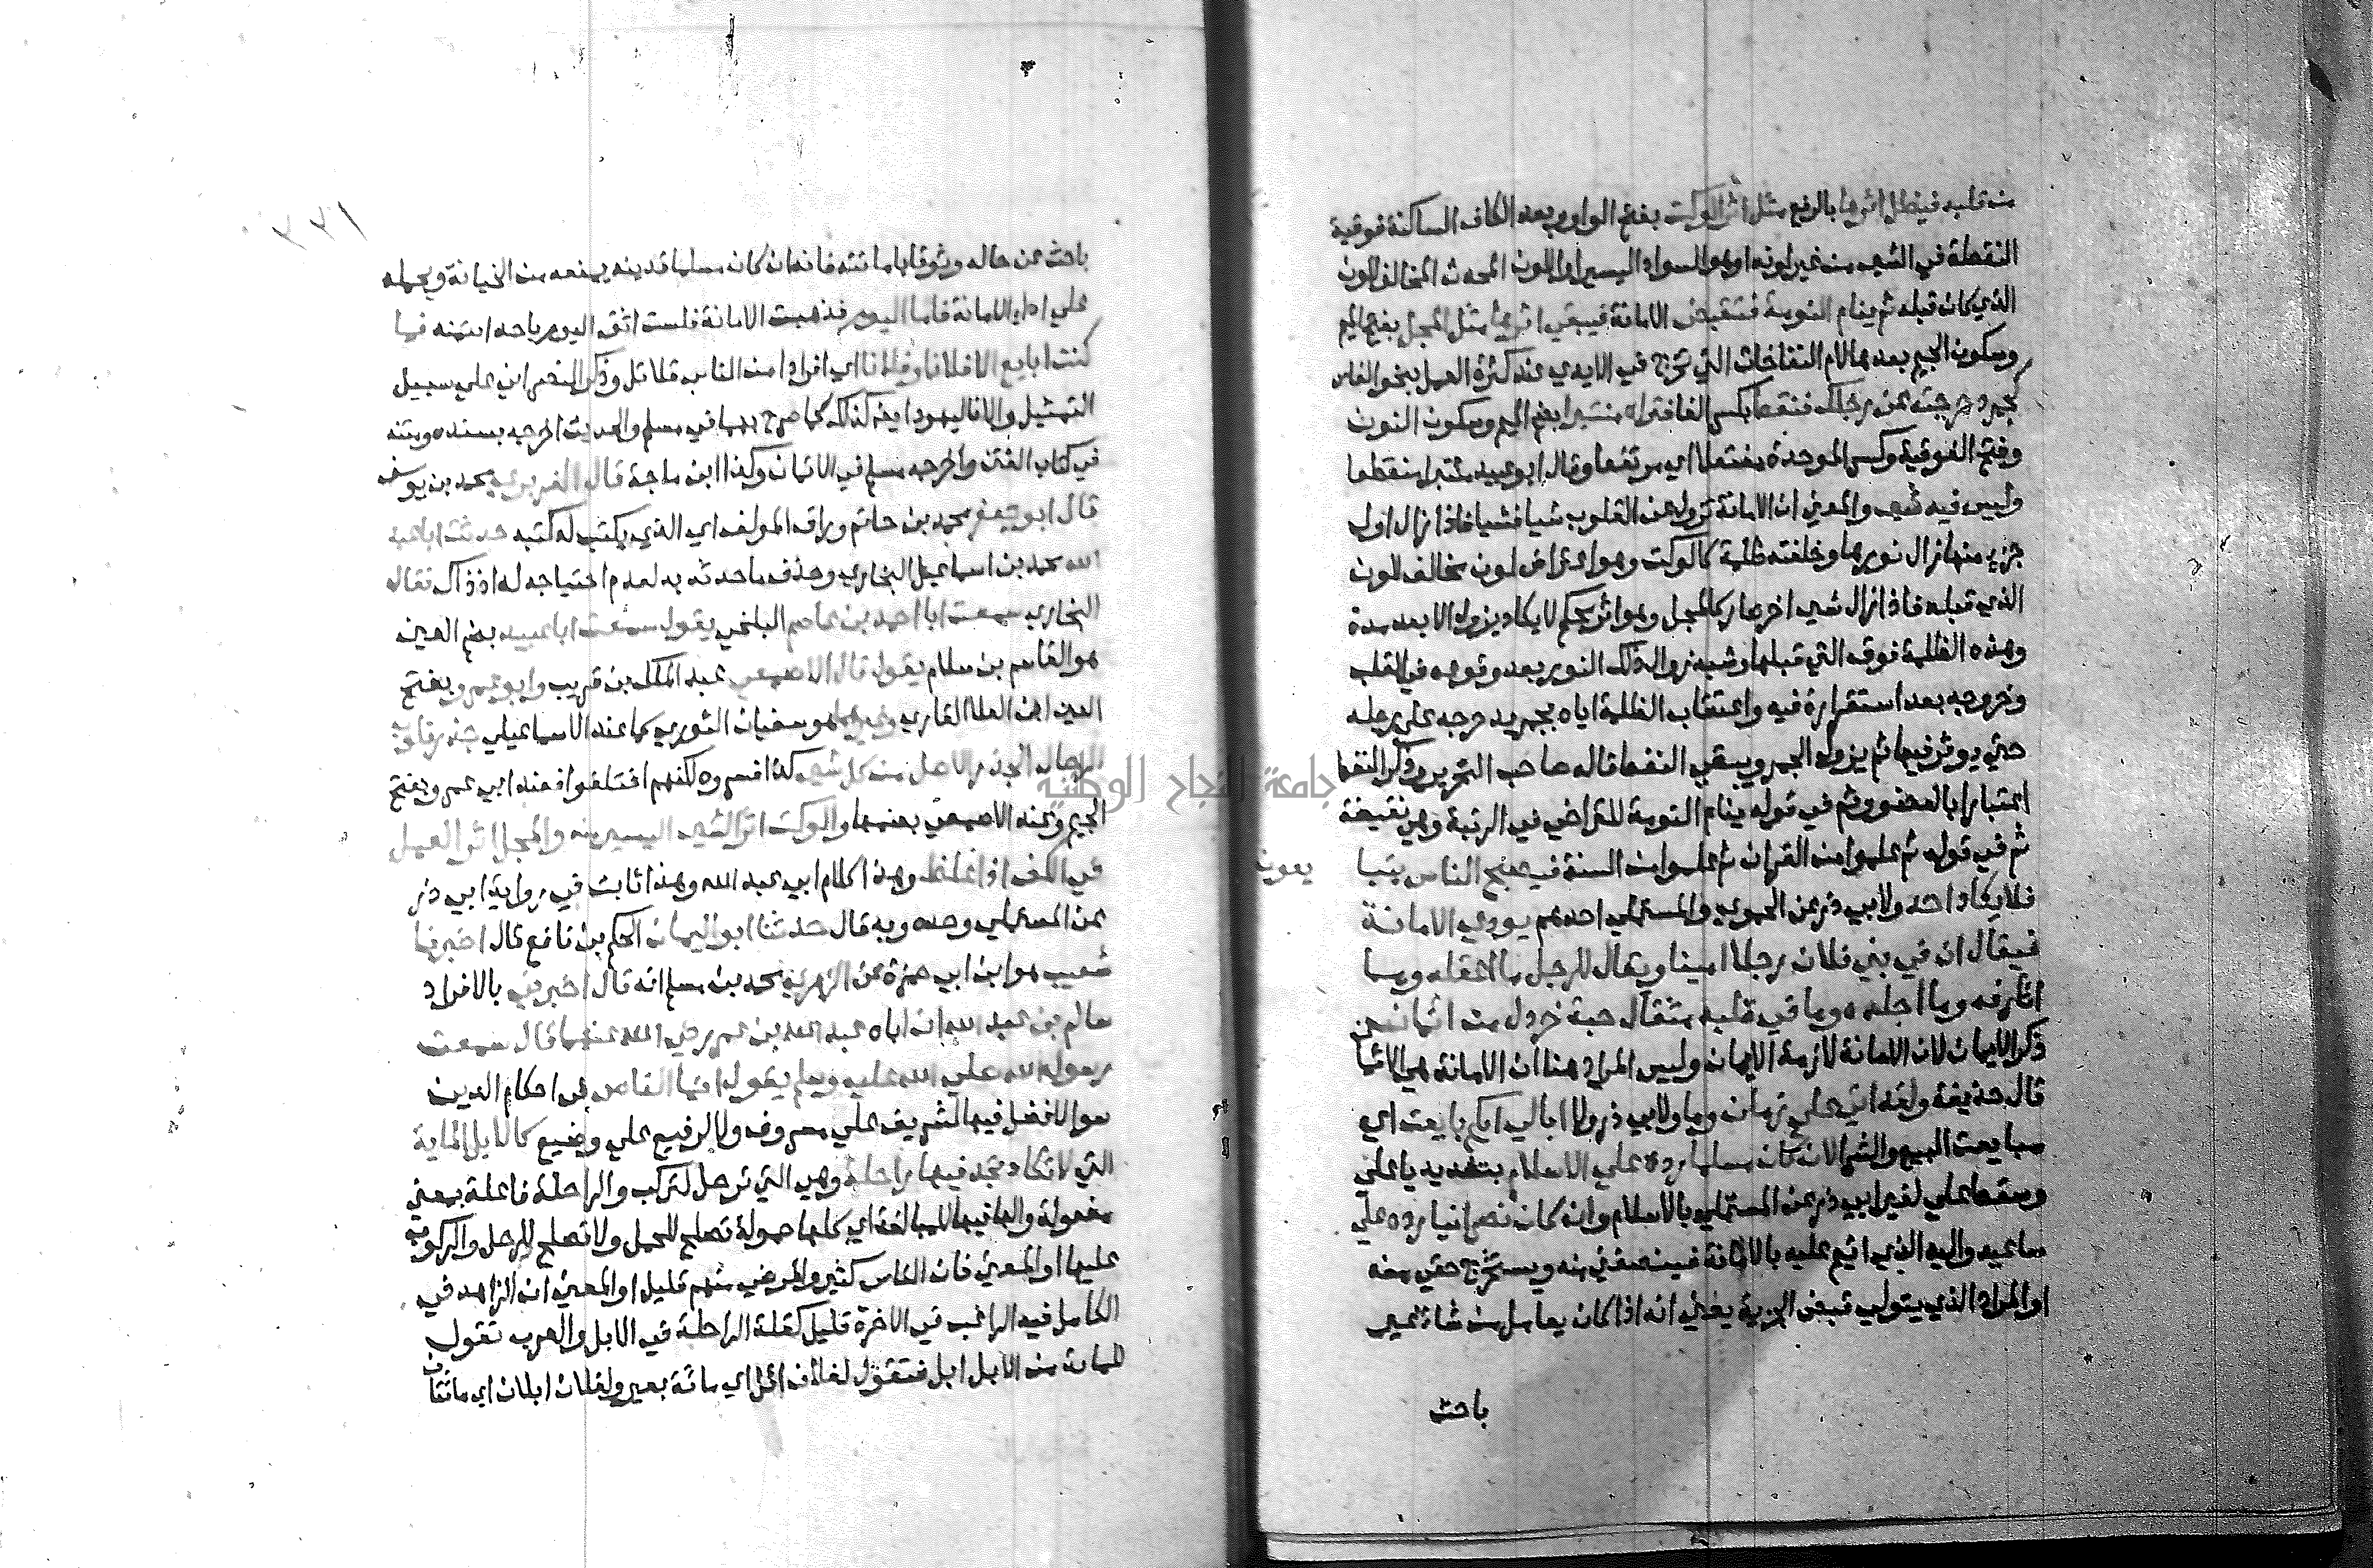 من قلبه فيظل اثرها بالرفع مثل اثر الوكت بفتح الواو وبعد الكاف الساكنة فوقية
النقطة في الشي من غير لونه او هو السواد اليسير او اللون المحدث المخالف للون
الذي كان قبله ثم ينام النومة فتقبض الامانة فيبقى اثرها مثل المجل بفتح الميم
وسكون الجيم بعدها لام النفاخات التي تخرج في الايدي عند كثرة العمل بنحو الفاس
كجمر دحرجته على رجلك فنفط بكسر الفا فتراه منتبرا بضم الميم وسكون النون
وفتح الفوقية وكسر الموحدة مفتعلا اي مرتفعا وقال ابو عبيد منتبرا منقطعا
وليس فيه شي والمعنى ان الامانة تزول عن القلوب شيا فشيا فاذا زال اول
جزء منها زال نورها وخلفته ظلمة كالوكت وهو اعتراض لون مخالف للون
الذي قبله فاذا زال شي اخر صار كالمجل وهو اثر محكم لا يكاد يزول الا بعد مدة
وهذه الظلمة فوق التي قبلها وشبه زوال ذلك النور بعد وقوعه في القلب
وخروجه بعد استقراره فيه واعتقاب الظلمة اياه بجمر يدحرجه على رجله
حتى يوثر فيها ثم يزول الجمر ويبقى النفط قاله صاحب التحرير وذكر النفط
اعتبارا بالعضو وثم في قوله ينام النومة للتراخي في الرتبة وهي نقيضة
ثم في قوله ثم علموا من القران ثم علموا من السنة فيصبح الناس يتبا يعون
فلا يكاد احد ولابي ذر عن الحموي والمستملي احدهم يودي الامانة
فيقال ان في بني فلان رجلا امينا ويقال للرجل ما اعقله وما
اظرفه وما اجلده وما في قلبه مثقال حبة خردل من ايمان
ذكر الايمان لان الامانة لازمة الايمان وليس المراد هنا ان الامانة هي الايما
قال حذيفة ولقد اتى علي زمان وما ولابي ذر ولا ابالي ايكم بايعت اي
مبايعت البيع والشرا لان كان مسلما رده علي الاسلام بتشديد يا علي
وسقط علي لغير ابي ذر عن المستملي بالاسلام وان كان نصرانيا رده علي
ساعيه واليه الذي اقيم عليه بالامانة فينصفني منه ويستخرج حقي منه
او المراد الذي يتولى قبض الجزية يعني انه اذا كان يعامل من شا غير
باحث
باحث عن حاله وثوقا بامانته فانه ان كان مسلما فدينه يمنعه من الخيانة ويحمله
على اداء الامانة فاما اليوم فذهبت الامانة فلست اثق اليوم باحد ايتمنه فما
كنت ابايع الا فلانا وفلانا اي افرادا من الناس قلائل وذكر النصراني على سبيل
التمثيل والا فاليهود ايضا كذلك كما صرح بهما في مسلم والحديث اخرجه بسنده ومتنه
في كتاب الفتن واخرجه مسلم في الايمان وكذا ابن ماجة قال الفربري محمد بن يوسف
قال ابو جعفر محمد بن حاتم وراق المولف اي الذي يكتب له كتبه حدثت ابا عبد
الله محمد بن اسماعيل البخاري وحذف ما حدثه به لعدم احتياجه له اذ ذاك فقال
البخاري سمعت ابا احمد بن عاصم البلخي يقول سمعت ابا عبيد بضم العين
هو القاسم بن سلام يقول قال الاصمعي عبد الملك بن قريب وابو عمرو بفتح
العين ابن العلا القاري وغيرهما هو سفيان الثوري كما عند الاسماعيلي جذر قلوب
الرجال الجذر الاصل من كل شي كذا فسروه لكنهم اختلفوا فعند ابي عمرو بفتح
الجيم وعند الاصمعي بعنيهما والوكت اثر الشي اليسير منه والمجل اثر العمل
في الكف اذا غلظ وهذا كلام ابي عبد الله وهذا ثابت في رواية ابي ذر
عن المستملي وحده وبه قال حدثنا ابو اليمان الحكم بن نافع قال اخبرنا
شعيب هو ابن ابي حمزة عن الزهري محمد بن مسلم انه قال اخبرني بالافراد
سالم بن عبد الله ان اباه عبد الله بن عمر رضي الله عنهما قال سمعت
رسول الله صلى الله عليه وسلم يقول انما الناس في احكام الدين
سوا لا فضل فيها لشريف على مشروف ولا لرفيع على وضيع كالابل الماية
التي لا تكاد تجد فيها راحلة وهي التي ترحل لتركب والراحلة فاعلة بمعنى
مفعولة والها فيها للمبالغة اي كلها حمولة تصلح للحمل ولا تصلح للرحل والركوب
عليها او المعنى فان الناس كثير والمرضي منهم قليل او المعنى ان الزاهد في
الكامل فيه الراغب في الاخرة قليل كقلة الراحلة في الابل والعرب تقول
للماية من الابل ابل فتقول لفلان ابل اي مائة بعير ولفلان ابلان اي مائتان
جامعة النجاح الوطنية